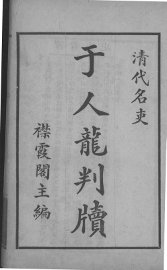 清代名吏
于人龍判牘
襟霞閣主編